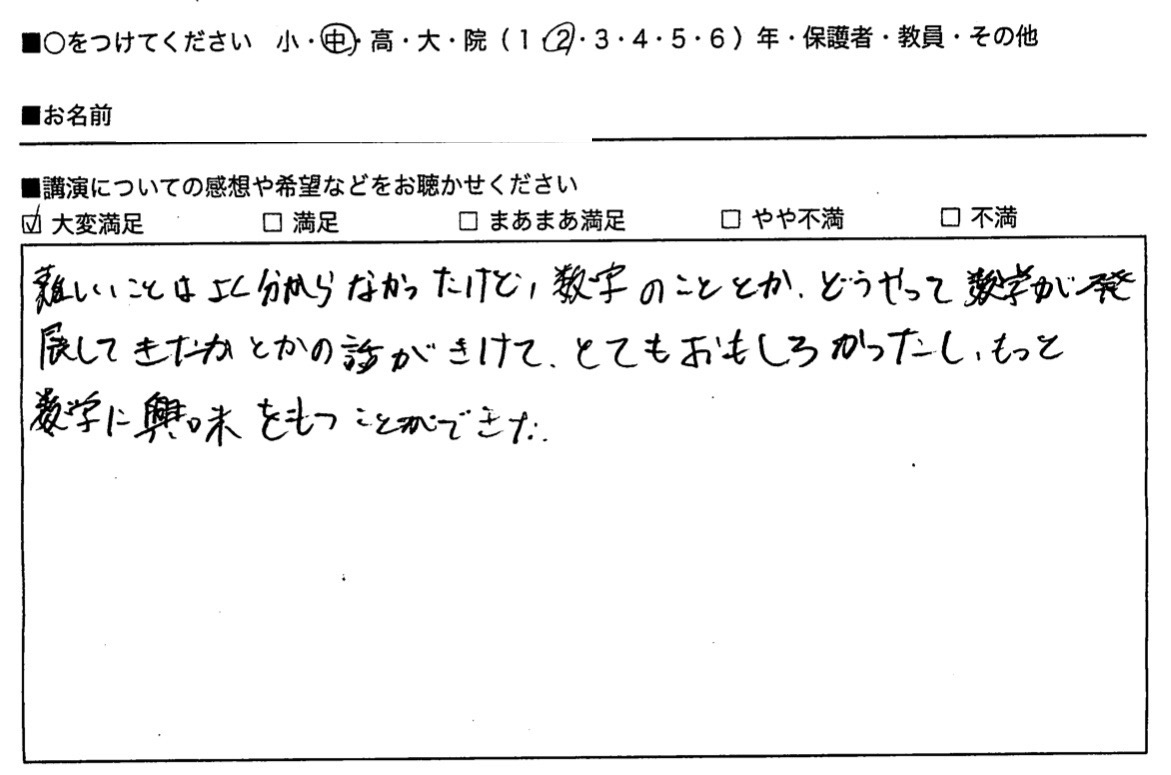 ■○をつけてください 小・中・高・大・院（1・2・3・4・5・6）年・保護者・教員・その他
■お名前
■講演についての感想や希望などをお聴かせください
☑ 大変満足 □ 満足 □ まあまあ満足 □ やや不満 □ 不満
難しいことはよく分からなかったけど、数字のこととか、どうやって数学が発
展してきたかとかの話がきけて、とてもおもしろかったし、もっと
数学に興味をもつことができた。